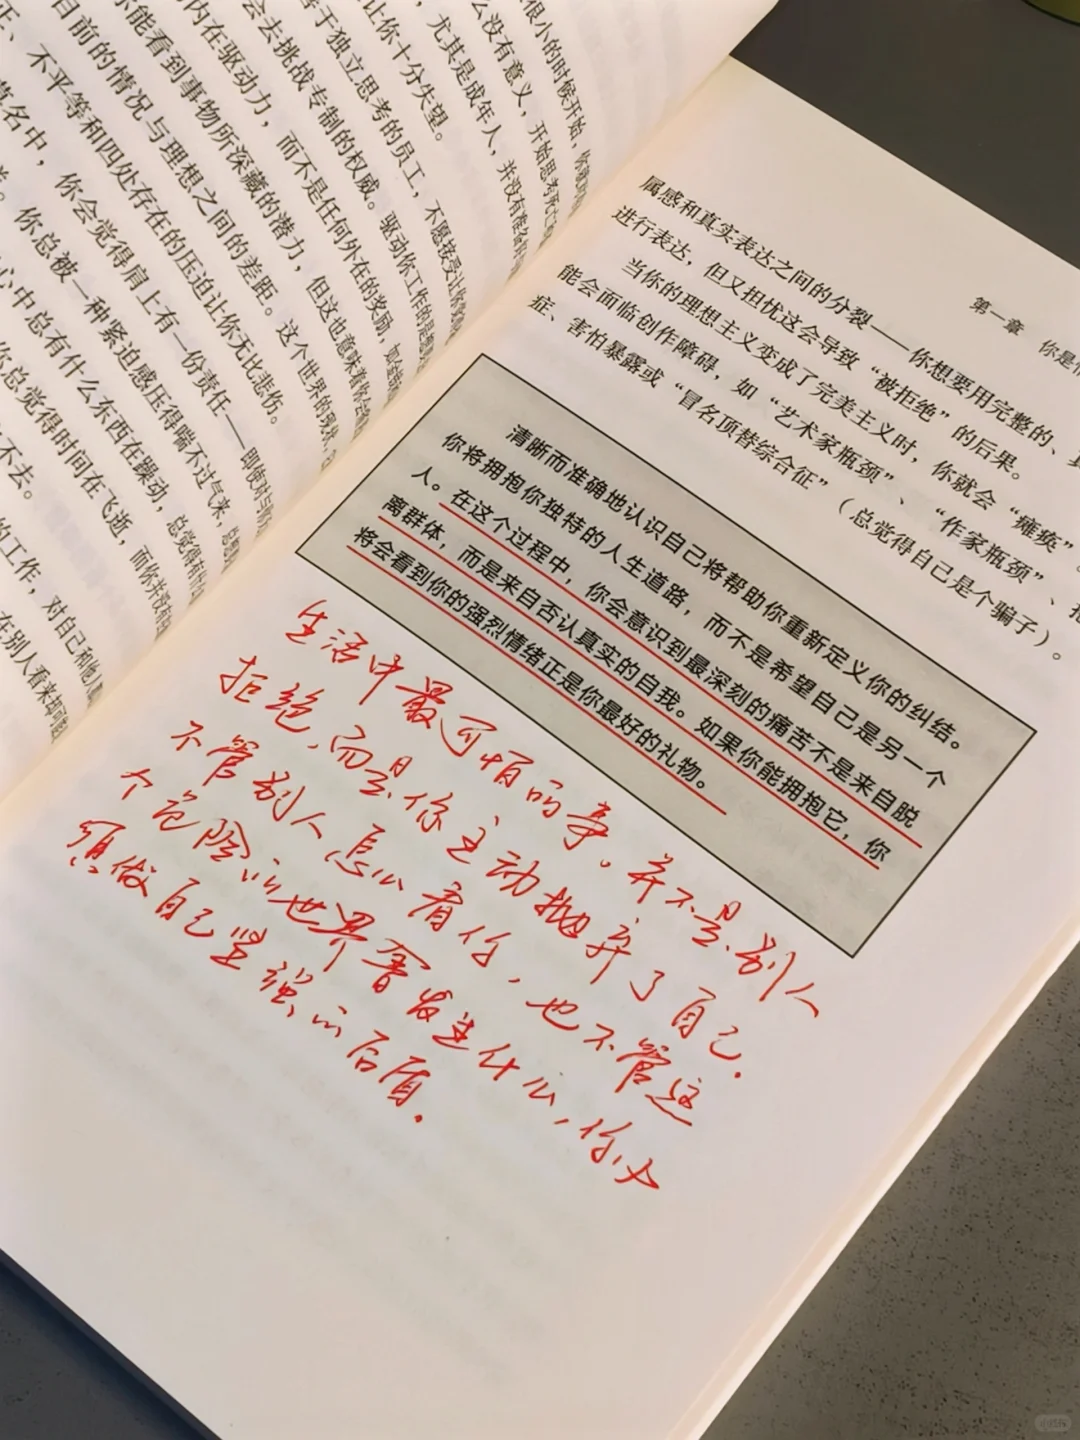 很小的时候开始，你就
么没有意义，开始思考死亡
，尤其是成年人，并没有准备
让你十分失望。
善于独立思考的员工，不愿接受让你
会去挑战专制的权威。驱动你工作的是
内在驱动力，而不是任何外在的奖励，如
你能看到事物所深藏的潜力，但这也意味着你会
目前的情况与理想之间的差距。这个世界的现状、
正、不平等和四处存在的压迫让你无比悲伤。
莫名中，你会觉得肩上有一份责任——即使对
你总被一种紧迫感压得喘不过气来，总觉
心中总有什么东西在躁动，总觉得有什
你总觉得时间在飞逝，而你并没有
不去。
的工作，对自己和他人
在别人看来却可
第一章 你是
属感和真实表达之间的分裂——你想要用完整的、真
进行表达，但又担忧这会导致“被拒绝”的后果。
当你的理想主义变成了完美主义时，你就会“瘫痪”。
能会面临创作障碍，如“艺术家瓶颈”、“作家瓶颈”、
症、害怕暴露或“冒名顶替综合征”（总觉得自己是个骗子）。
清晰而准确地认识自己将帮助你重新定义你的纠结。
你将拥抱你独特的人生道路，而不是希望自己是另一个
人。在这个过程中，你会意识到最深刻的痛苦不是来自脱
离群体，而是来自否认真实的自我。如果你能拥抱它，你
将会看到你的强烈情绪正是你最好的礼物。
生活中最可怕的事。并不是别人
拒绝，而是你主动抛弃了自己.
不管别人怎么看你，也不管这
个危险的世界会发生什么，你必
须做自己坚强的后盾.
小红书